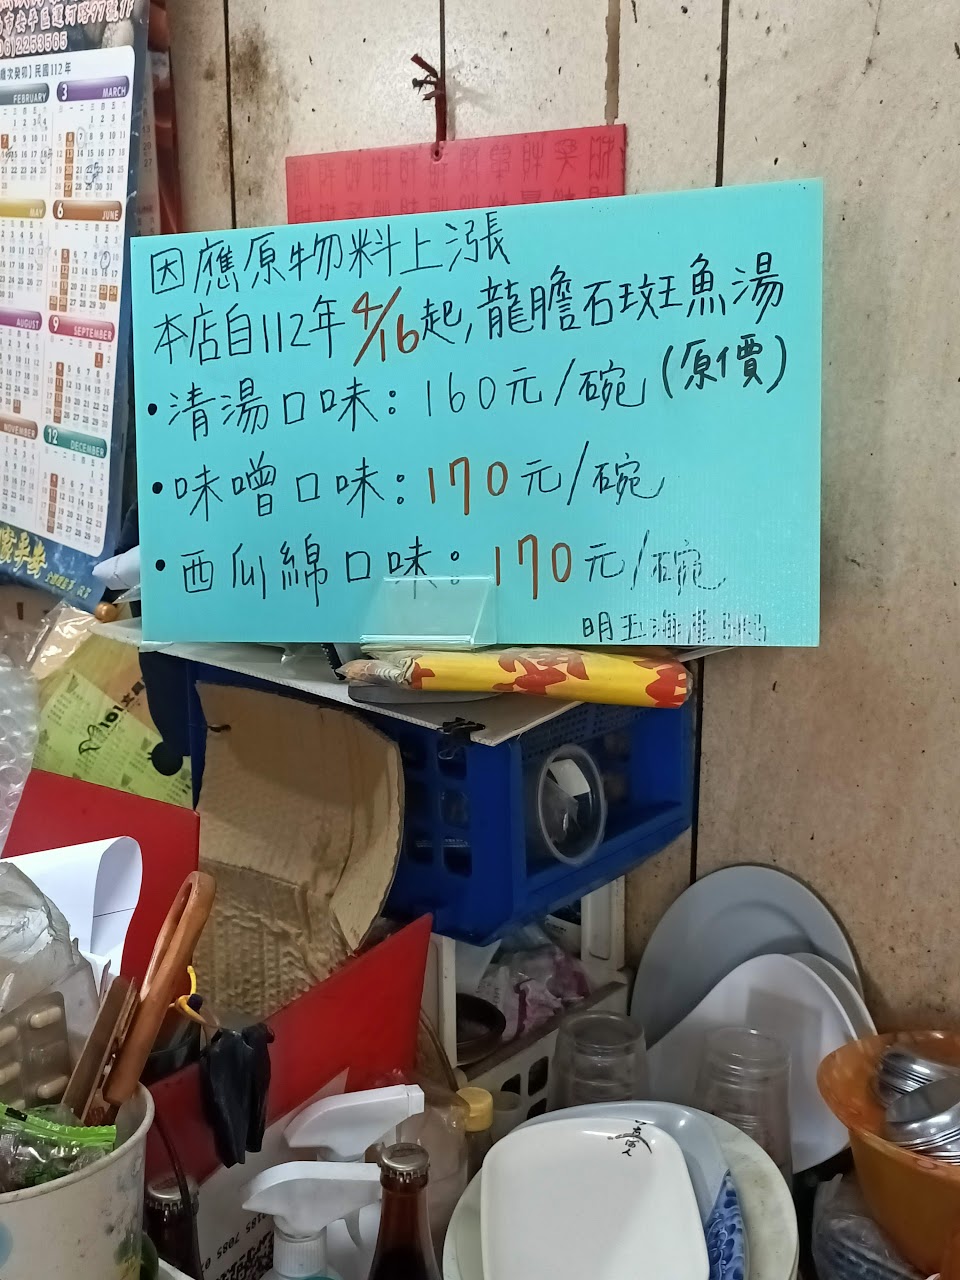 因應原物料上漲
本店自112年4/16起,龍膽石斑魚湯
•清湯口味:160元/碗(原價)
•味噌口味:170元/碗
•西瓜綿口味:170元/碗
明玉海產
民國112年
FEBRUARY
3 MARCH
MAY
6 JUNE
AUGUST
9 SEPTEMBER
NOVEMBER
12 DECEMBER